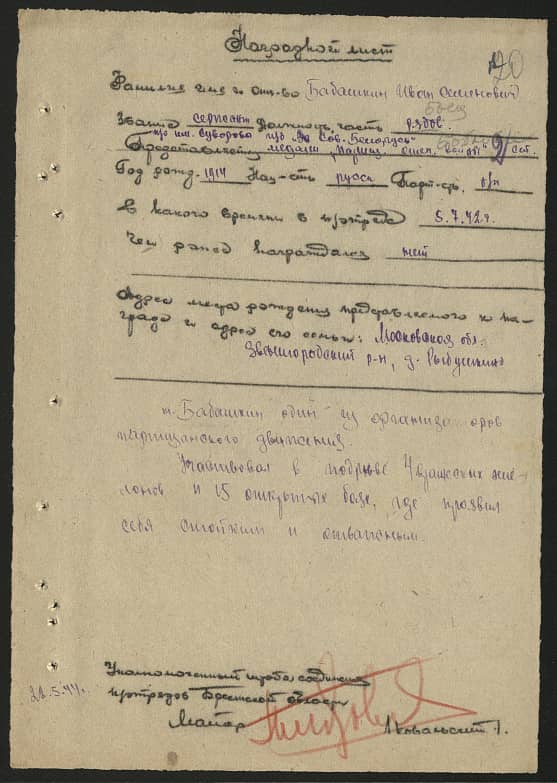 20
Наградной лист
Фамилие имя и от-во Бабашкин Иван Семенович
боец
Звание сержант Должность, часть рядов.
п/о им. Суворова п/б "За Сов. Беларусь"
Представляется к медали "Партиз. отеч. войны" 2 ст.
Год рожд. 1914 Нац-сть русск Парт-сть б/п
С какого времени в п/отряде 5.7.42 г.
Чем ранее награждался нет
Адрес места рождения представляемого к на-
граде и адрес его семьи: Московская обл.
Звенигородский р-н, д.
т. Бабашкин один из организаторов
партизанского движения.
Участвовал в подрыве 4 вражеских эше-
лонов и 15 открытых боях, где проявил
себя стойким и отважным.
Уполномоченный штаба соединения
п/отрядов Брестской области
22.5.44 г.
Майор